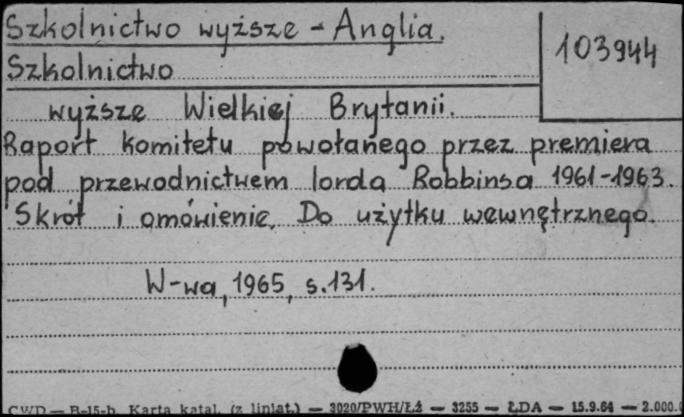 Szkolnictwo wyższe - Anglia.
103944
Szkolnictwo
wyższe Wielkiej Brytanii.
Raport komitetu powołanego przez premiera
pod przewodnictwem lorda Robbinsa 1961-1963.
Skrót i omówienie. Do użytku wewnętrznego.
W-wa, 1965, s.131.
CWD — B-15-b Karta katal. (z liniat.) — 3020/PWH/ŁŻ — 3255 — ŁDA — 15.9.64 — 2.000.